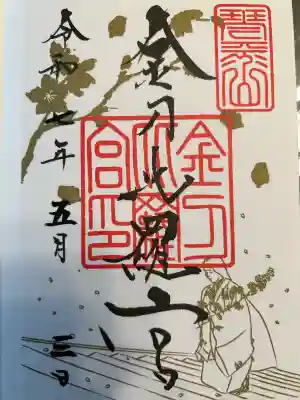 金刀比羅宮
令和七年五月三日
琴平山
金刀比羅宮印